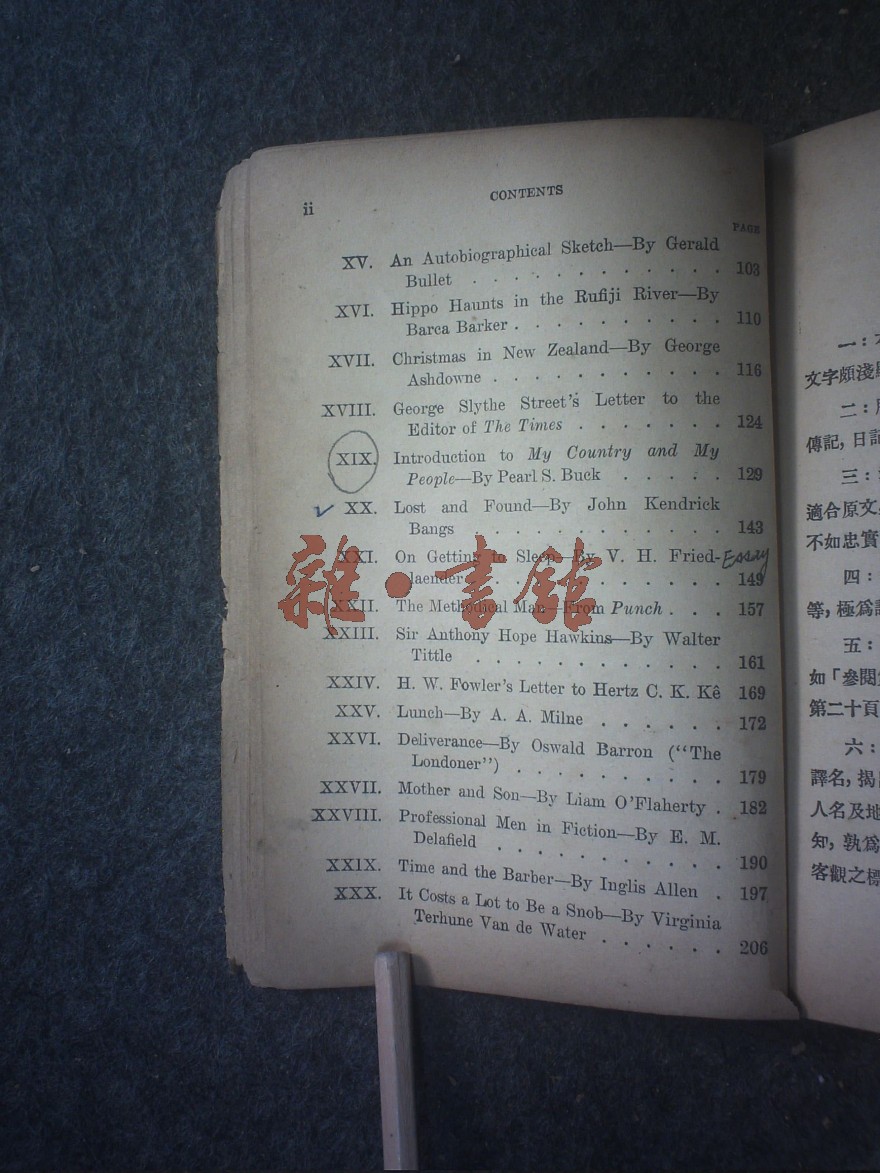 ii
CONTENTS
PAGE
XV. An Autobiographical Sketch—By Gerald
Bullet . . . . . . . . . . . . 103
XVI. Hippo Haunts in the Rufiji River—By
Barca Barker . . . . . . . . . . 110
XVII. Christmas in New Zealand—By George
Ashdowne . . . . . . . . . . . 116
XVIII. George Slythe Street's Letter to the
Editor of The Times . . . . . . . 124
XIX. Introduction to My Country and My
People—By Pearl S. Buck . . . . . 129
XX. Lost and Found—By John Kendrick
Bangs . . . . . . . . . . . . 143
XXI. On Getting to Sleep—By V. H. Fried- Essay
laender . . . . . . . . . . . 149
XXII. The Methodical Man—From Punch . . . 157
XXIII. Sir Anthony Hope Hawkins—By Walter
Tittle . . . . . . . . . . . . 161
XXIV. H. W. Fowler's Letter to Hertz C. K. Kê 169
XXV. Lunch—By A. A. Milne . . . . . . 172
XXVI. Deliverance—By Oswald Barron ("The
Londoner") . . . . . . . . . . 179
XXVII. Mother and Son—By Liam O'Flaherty . 182
XXVIII. Professional Men in Fiction—By E. M.
Delafield . . . . . . . . . . . 190
XXIX. Time and the Barber—By Inglis Allen . 197
XXX. It Costs a Lot to Be a Snob—By Virginia
Terhune Van de Water . . . . . . 206
雜·書館
一：
文字頗淺
二：
傳記，日記
三：
適合原文，
不如忠實
四：
等，極爲
五：
如「參閱
第二十頁
六：
譯名，揭
人名及地
知，孰爲
客觀之標